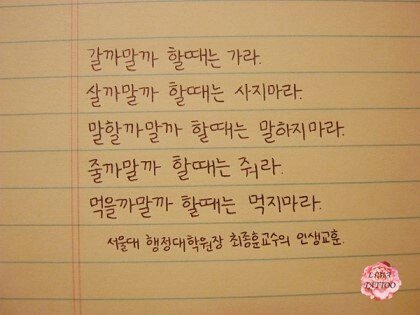 갈까말까 할때는 가라.
살까말까 할때는 사지마라.
말할까말까 할때는 말하지마라.
줄까말까 할때는 줘라.
먹을까말까 할때는 먹지마라.
서울대 행정대학원장 최종훈교수의 인생교훈.
TATTOO